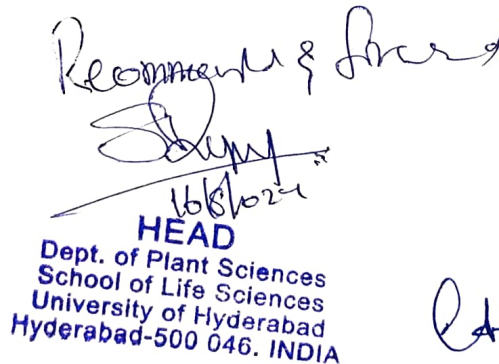 Recommended & Forwarded
16/8/2024
HEAD
Dept. of Plant Sciences
School of Life Sciences
University of Hyderabad
Hyderabad-500 046. INDIA